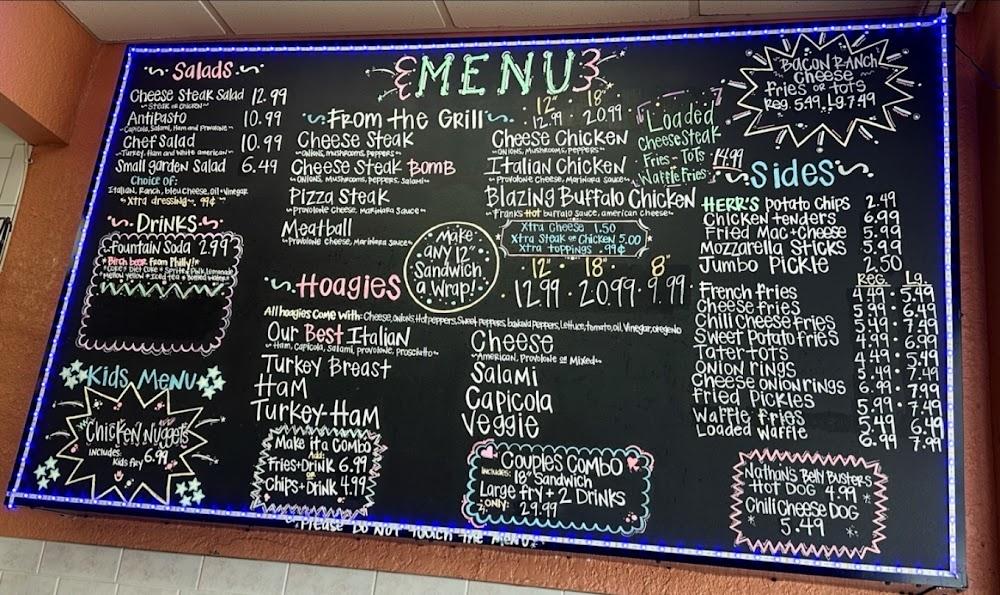 MENU
Salads
Cheese Steak Salad 12.99
Steak or Chicken
Antipasto 10.99
Capicola, Salami, Ham and Provolone
Chef Salad 10.99
Turkey, Ham and White American
Small garden Salad 6.49
Choice of:
Italian, Ranch, bleu Cheese, Oil+Vinegar
Xtra dressing 99¢
Drinks
Fountain Soda 2.99
Birch beer from Philly!
Coke Diet Coke Sprite Pink Lemonade
Mellow Yellow Iced tea Bottled Water
Kids Menu
Chicken Nuggets
Includes: 6.99
Kids fry
From the Grill
12" 18"
12.99 20.99
Cheese Steak
Onions, Mushrooms, Peppers
Cheese Steak Bomb
Onions, Mushrooms, Peppers, Salami
Pizza Steak
Provolone Cheese, Marinara Sauce
Meatball
Provolone Cheese, Marinara Sauce
Cheese Chicken
Onions, Mushrooms, Peppers
Italian Chicken
Provolone Cheese, Marinara Sauce
Blazing Buffalo Chicken
Franks Hot buffalo sauce, american cheese
Make
any 12"
Sandwich
a Wrap!
Xtra Cheese 1.50
Xtra Steak or Chicken 5.00
Xtra toppings .99¢
Hoagies
12" 18" 8"
12.99 20.99 9.99
All hoagies Come With: Cheese, onions, Hot peppers, Sweet peppers, banana peppers, Lettuce, tomato, oil, Vinegar, oregeno
Our Best Italian
Ham, Capicola, Salami, Provolone, Prosciutto
Turkey Breast
Ham
Turkey-Ham
Cheese
American, Provolone or Mixed
Salami
Capicola
Veggie
Make it a Combo
Add:
Fries+Drink 6.99
or
Chips+Drink 4.99
Couples Combo
Includes: 18" Sandwich
Large fry + 2 Drinks
Only: 29.99
Please Do Not Touch the Menu
Loaded
Cheese Steak
Fries-Tots 14.99
Waffle Fries
Bacon Ranch
Cheese
Fries or Tots
Reg. 5.49 Lg 7.49
Sides
Herr's Potato Chips 2.49
Chicken tenders 6.99
Fried Mac+Cheese 5.99
Mozzarella Sticks 5.99
Jumbo Pickle 2.50
Reg. Lg.
French fries 4.49 5.49
Cheese fries 5.99 6.49
Chili Cheese Fries 5.49 7.49
Sweet Potato fries 4.99 6.99
Tater-tots 4.49 5.49
Onion rings 5.49 7.49
Cheese Onion rings 6.99 7.99
Fried Pickles 5.99 7.49
Waffle fries 5.49 6.49
Loaded Waffle 6.99 7.99
Nathan's Belly Busters
Hot Dog 4.99
Chili Cheese Dog
5.49